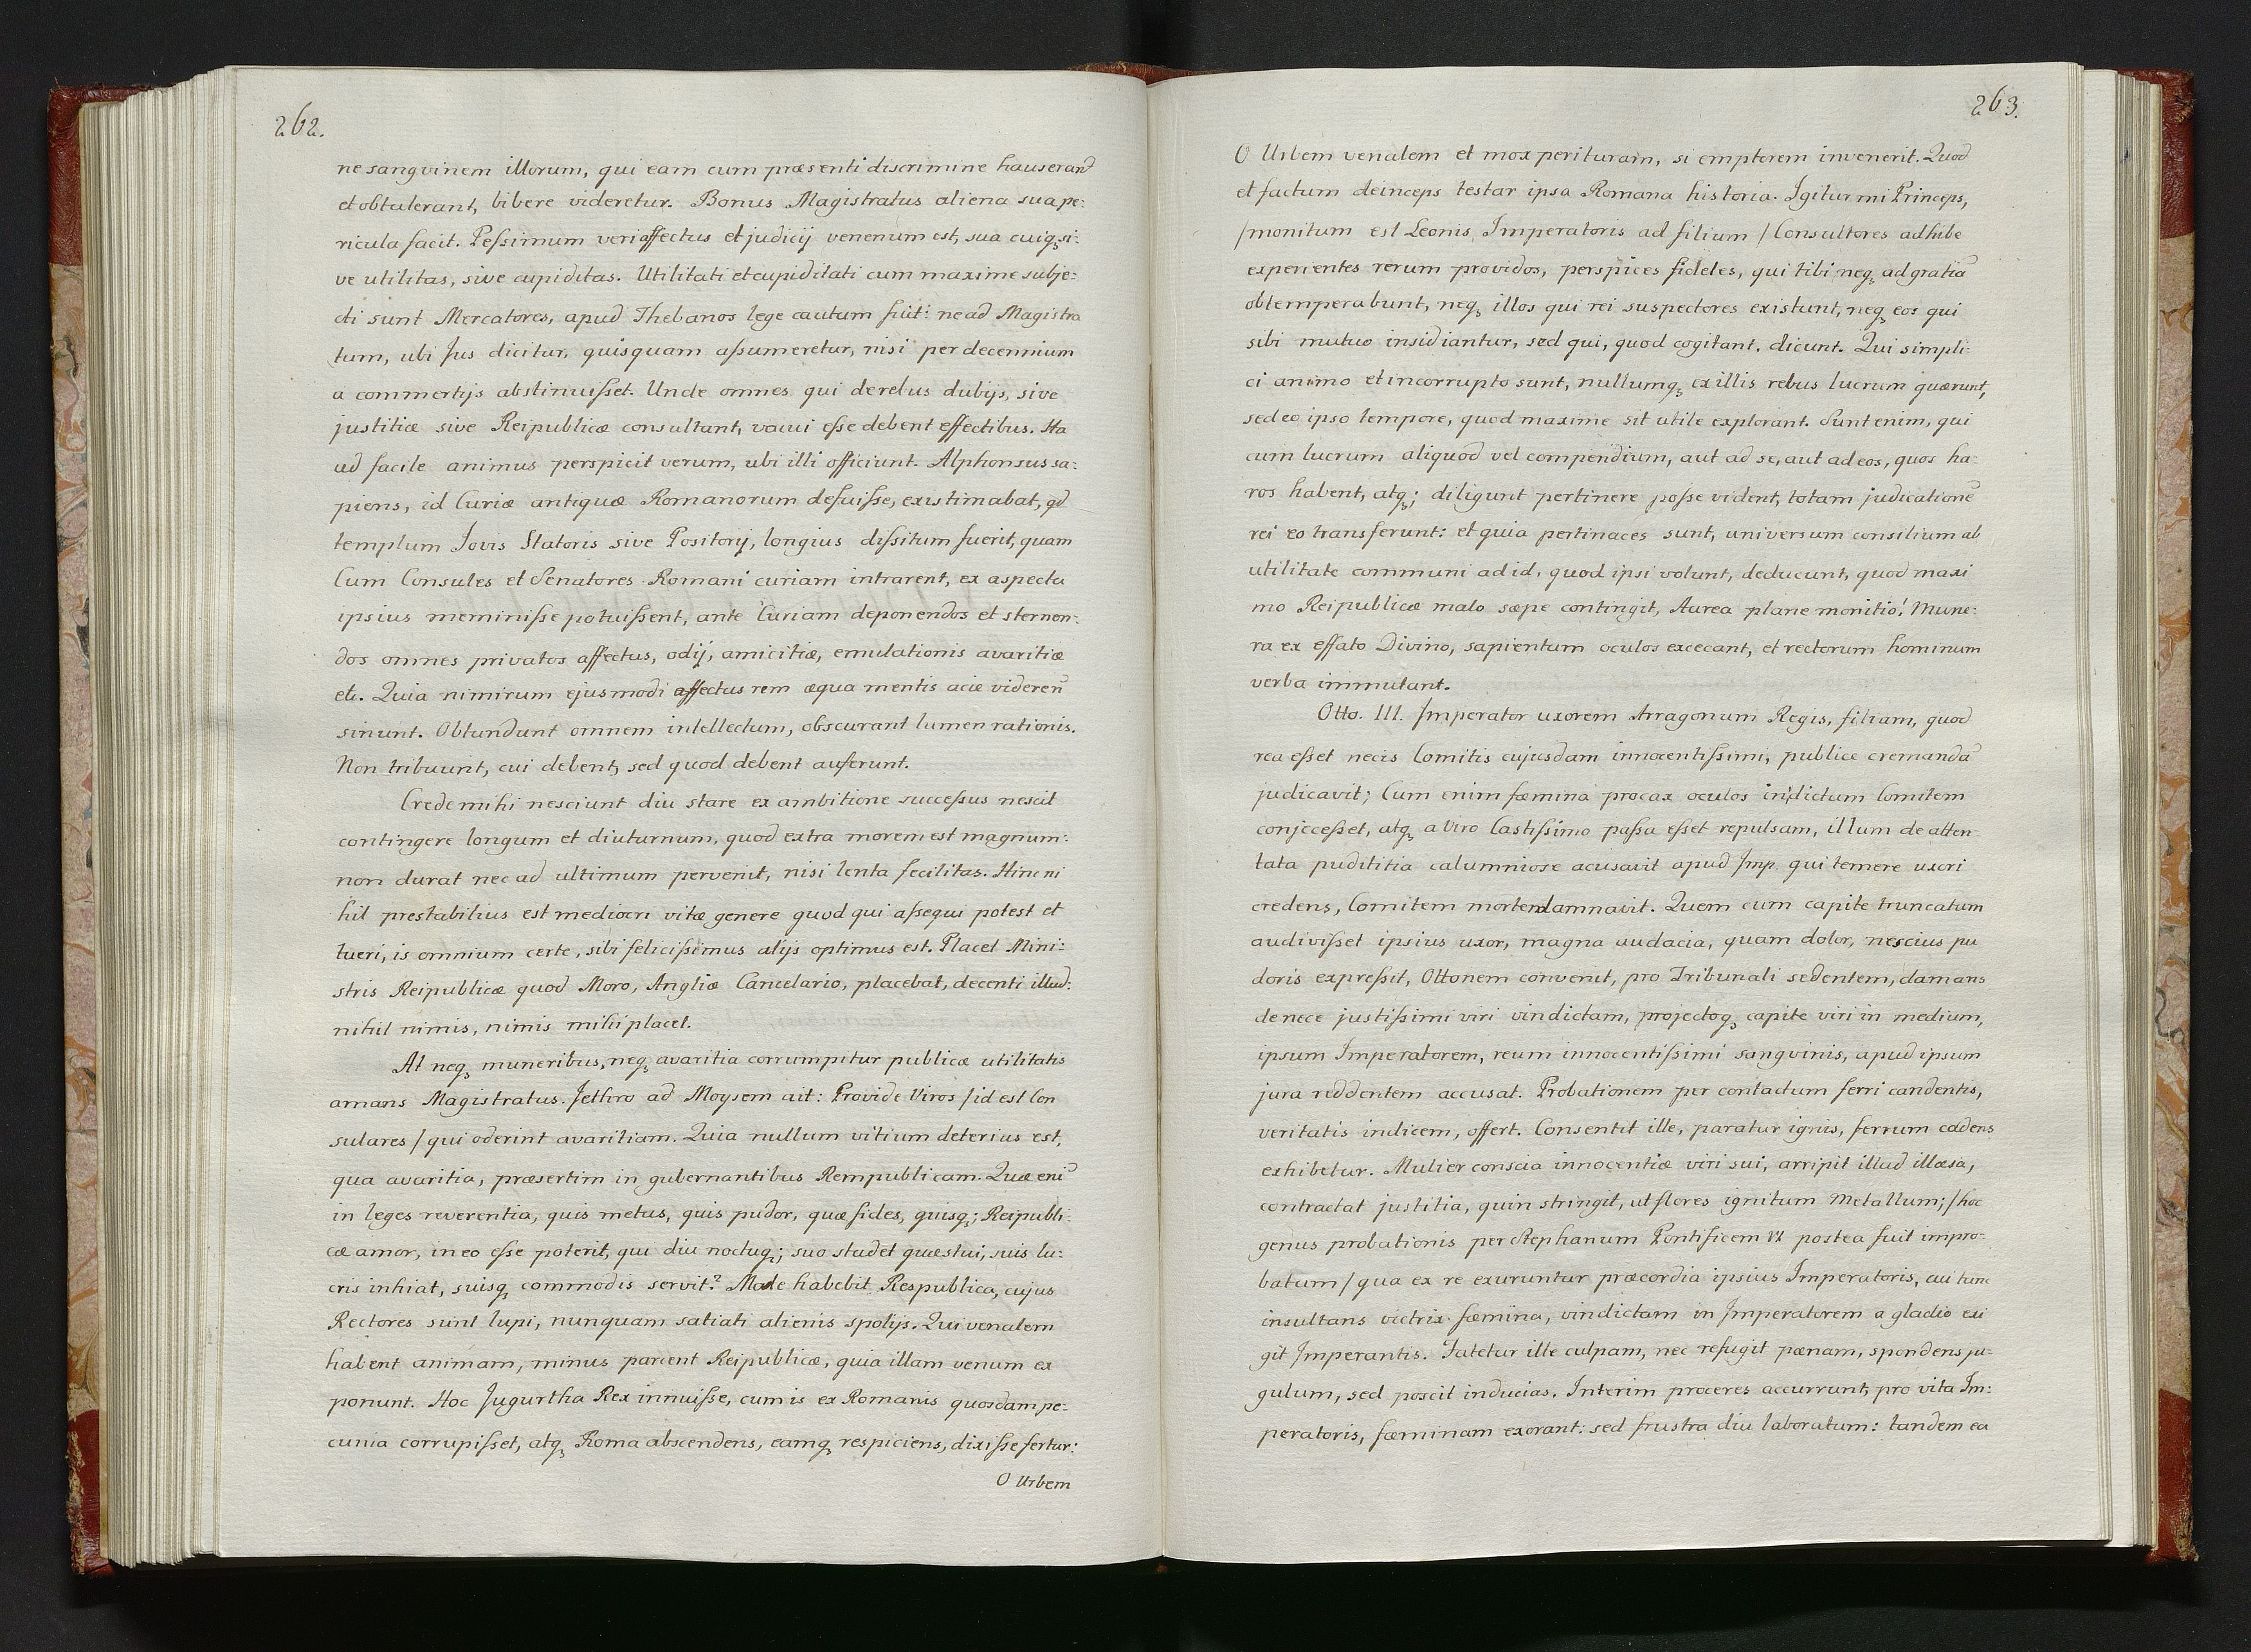 262.
ne sangvinem illorum, qui eam cum præsenti discrimine hauserant
et obtulerant, bibere videretur. Bonus Magistratus aliena sua pe:
ricula facit. Peſsimum veri affectus et judicij venenum est, sua cuiqꝫ si:
ve utilitas, sive cupiditas. Utilitati et cupiditati cum maxime subje:
cti sunt Mercatores, apud Thebanos lege cautum fuit: ne ad Magistra
tum, ubi Jus dicitur, quisquam aſsumeretur, nisi per decennium
a commertijs abstinuiſset. Unde omnes qui de rebus dubijs, sive
justitiæ sive Reipublicæ consultant, vacui eſse debent effectibus. Ha
ud facile animus perspicit verum, ubi illi officiunt. Alphonsus sa:
piens, id Curiæ antiquæ Romanorum defuiſse, existimabat, qd
templum Jovis Statoris sive Positorij, longius diſsitum fuerit, quam
Cum Consules et Senatores Romani curiam intrarent, ex aspectu
ipsius meminiſse potuiſsent, ante Curiam deponendos et sternen:
dos omnes privatos affectus, odij, amicitiæ, emulationis avaritiæ
etc. Quia nimirum ejusmodi affectus rem æqua mentis acie videre ñ
sinunt. Obtundunt omnem intellectum, obscurant lumen rationis.
Non tribuunt, cui debent, sed quod debent auferunt.
Crede mihi nesciunt diu stare ex ambitione succeſsus nescit
contingere longum et diuturnum, quod extra morem est magnum:
non durat nec ad ultimum pervenit, nisi lenta fecilitas. Hinc ni
hil prestabilius est mediocri vitæ genere quod qui aſsequi potest et
tueri, is omnium certe, sibi feliciſsimus alijs optimus est. Placet Mini:
stris Reipublicæ quod Moro, Angliæ Cancelario, placebat, decenti illud:
nihil nimis, nimis mihi placet.
At neqꝫ muneribus, neqꝫ avaritia corrumpitur publicæ utilitatis
amans Magistratus. Jethro ad Moysem ait: Provide Viros /id est Con
sulares/ qui oderint avaritiam. Quia nullum vitium deterius est,
qua avaritia, præsertim in gubernantibus Rempublicam. Quæ enī
in leges reverentia, quis metus, quis pudor, quæ fides, quisqꝫ; Reipubli:
cæ amor, in eo eſse poterit, qui diu noctuqꝫ; suo studet quæstui, suis lu:
cris inhiat, suisqꝫ commodis servit? Male habebit Respublica, cujus
Rectores sunt lupi, nunquam satiati alienis spolijs. Qui venalem
habent animam, minus parcent Reipublicæ, quia illam venum ex
ponunt. Hoc Jugurtha Rex innuiſse, cum is ex Romanis quosdam pe:
cunia corrupiſset, atqꝫ Roma abscendens, eamqꝫ respiciens, dixiſse fertur:
O Urbem
263.
O Urbem venalem et mox perituram, si emptorem invenerit. Quod
et factum deinceps testar ipsa Romana historia. Igitur mi Princeps,
/monitum est Leonis Imperatoris ad filium/ Consultores adhibe
experientes rerum providos, perspices fideles, qui tibi neqꝫ ad gratiā
obtemperabunt, neqꝫ illos qui rei suspectores existunt, neqꝫ eos qui
sibi mutuo insidiantur, sed qui, quod cogitant, dicunt. Qui simpli:
ci animo et incorrupto sunt, nullumqꝫ ex illis rebus lucrum quærunt,
sed eo ipso tempore, quod maxime sit utile explorant. Sunt enim, qui
cum lucrum aliquod vel compendium, aut ad se, aut ad eos, quos ha:
ros habent, atqꝫ; diligunt pertinere poſse vident, totam judicationē
rei eo transferunt: et quia pertinaces sunt, universum consilium ab
utilitate communi ad id, quod ipsi volunt, deducunt, quod maxi
mo Reipublicæ malo sæpe contingit, Aurea plane monitio! Mune:
ra ex effato Divino, sapientum oculos excecant, et rectorum hominum
verba immutant.
Otto. III. Imperator uxorem Arragonum Regis, filiam, quod
rea eſset necis Comitis cujusdam innocentiſsimi, publice cremandā
judicavit; Cum enim fæmina procax oculos in dictum Comitem
conjeceſset, atqꝫ a Viro Castiſsimo paſsa eſset repulsam, illum de atten
tata pudititia calumniose acusavit apud Imp. qui temere uxori
credens, Comitem morte damnavit. Quem cum capite truncatum
audiviſset ipsius uxor, magna audacia, quam dolor, nescius pu
doris expreſsit, Ottonem convenit, pro Tribunali sedentem, clamans
de nece justiſsimi viri vindictam, projectoqꝫ capite viri in medium,
ipsum Imperatorem, reum innocentiſsimi sangvinis, apud ipsum
jura reddentem accusat. Probationem per contactum ferri candentis,
veritatis indicem, offert. Consentit ille, paratur ignis, ferrum cadens
exhibetur. Mulier conscia innocentiæ viri sui, arripit illud illæsa,
contractat justitia, quin stringit, ut flores ignitum Metallum; /hoc
genus probationis per Stephanum Pontificem VI postea fuit impro:
batum/ qua ex re exuruntur præcordia ipsius Imperatoris, cui tunc
insultans victrix fæmina, vindictam in Imperatorem a gladio exi
git Imperantis. Fatetur ille culpam, nec refugit pænam, spondens ju:
gulum, sed poscit inducias. Interim proceres accurrunt, pro vita Im:
peratoris, fæminam exorant: sed frustra diu laboratum: tandem ea